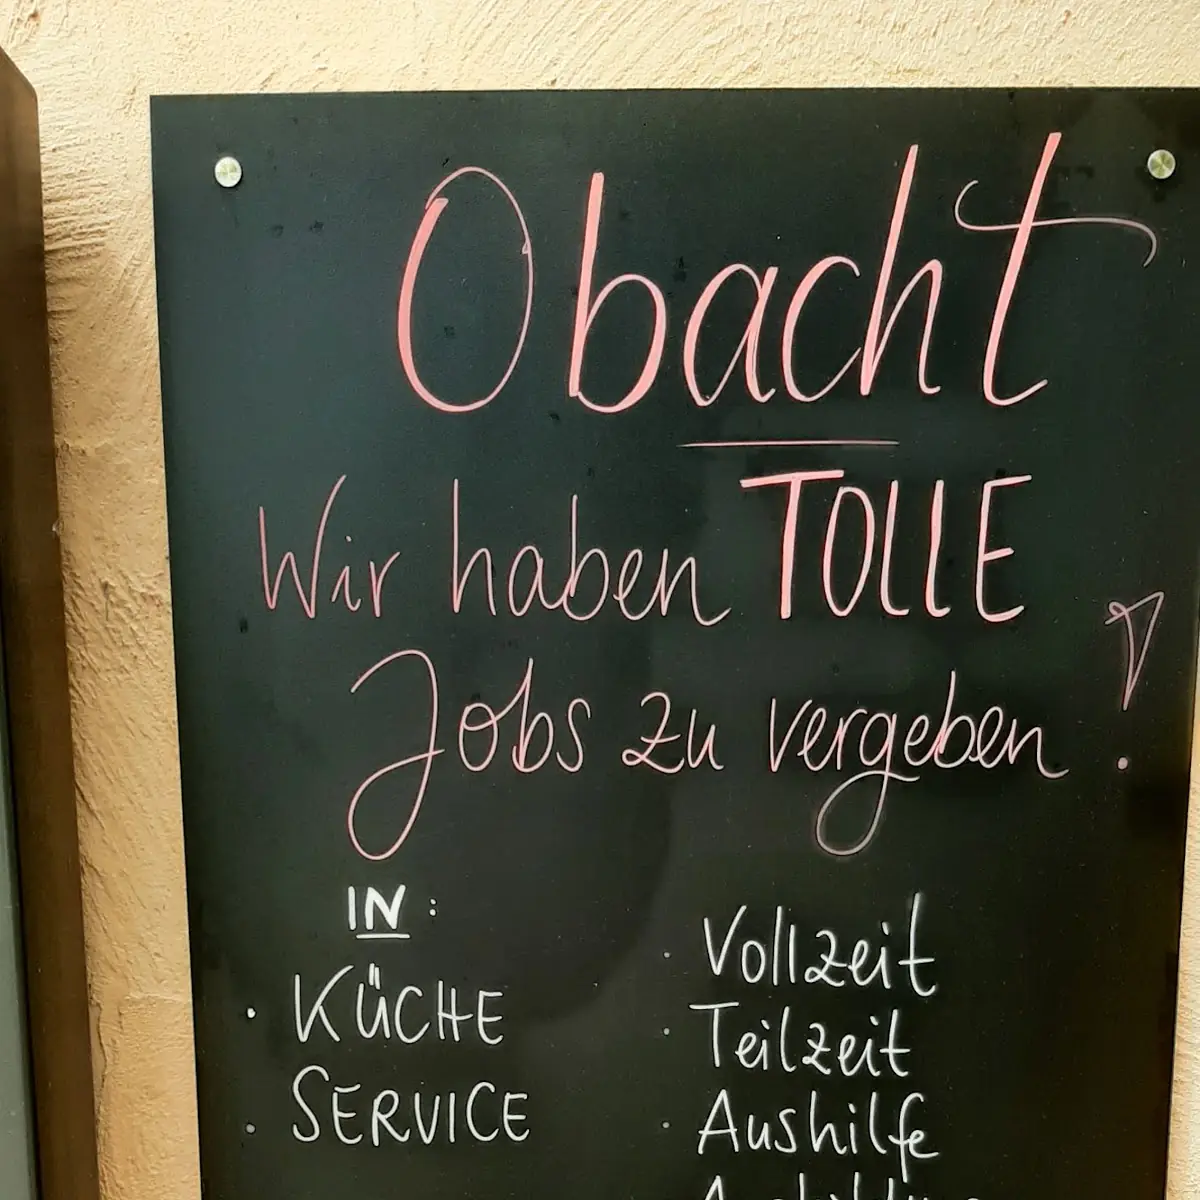 Obacht
Wir haben TOLLE
Jobs zu vergeben!
IN:
· KÜCHE
· SERVICE
· Vollzeit
· Teilzeit
· Aushilfe